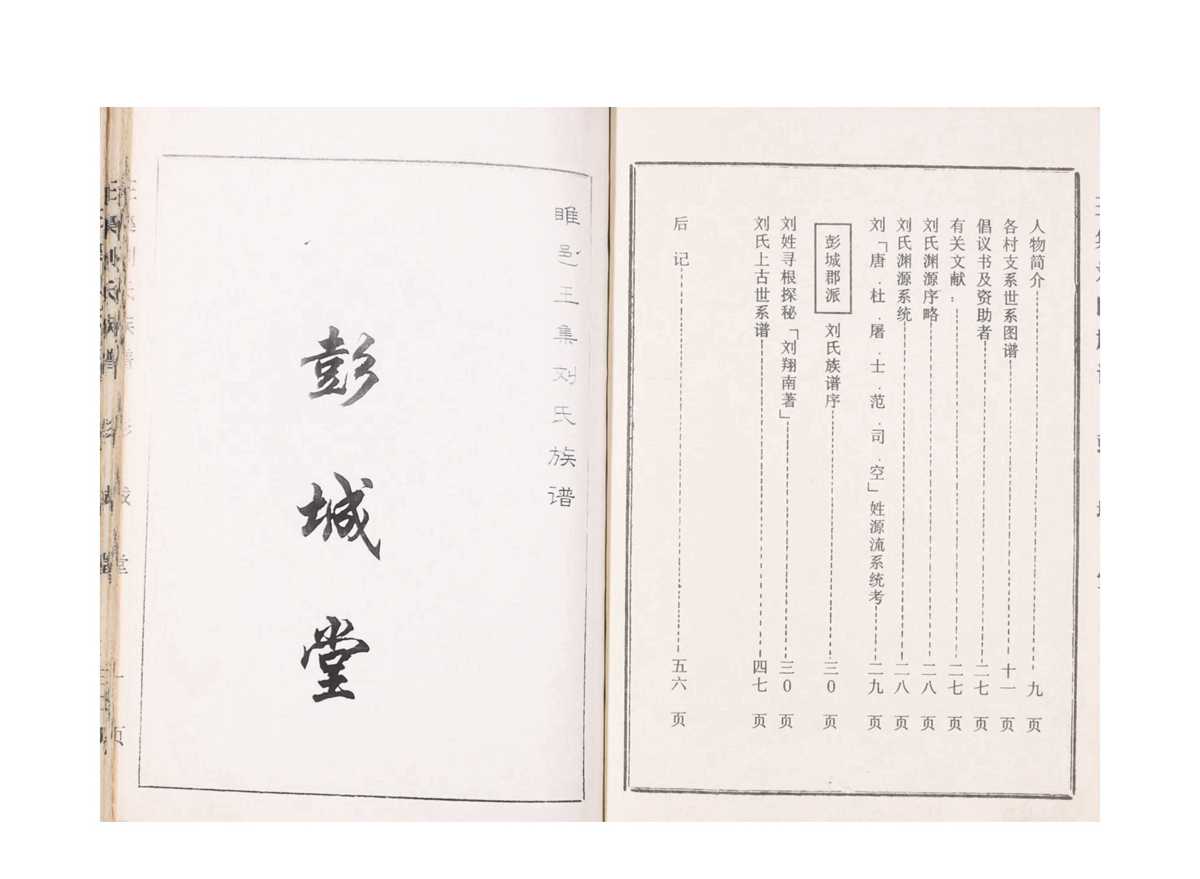 人物简介 九页
各村支系世系图谱 十一页
倡议书及资助者 二七页
有关文献： 二七页
刘氏渊源序略 二八页
刘氏渊源系统 二八页
刘「唐．杜．屠．士．范．司．空」姓源流系统考 二九页
彭城郡派 刘氏族谱序 三0页
刘姓寻根探秘「刘翔南著」 三0页
刘氏上古世系谱 四七页
后记 五六页
睢邑王集刘氏族谱
彭城堂